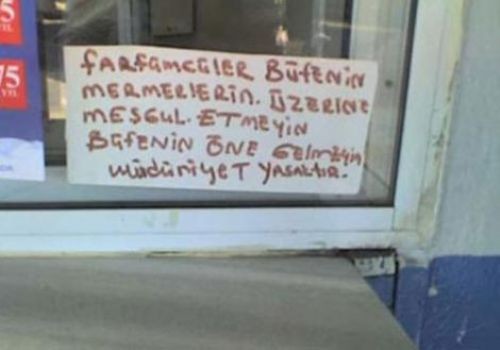 5
YIL
75
YIL
FARFÜMCÜLER BÜFENİN
MERMERLERİN. ÜZERİNE
MEŞGUL. ETMEYİN
BÜFENİN ÖNE GELMEYİN
MÜDÜRİYET YASAKTIR.